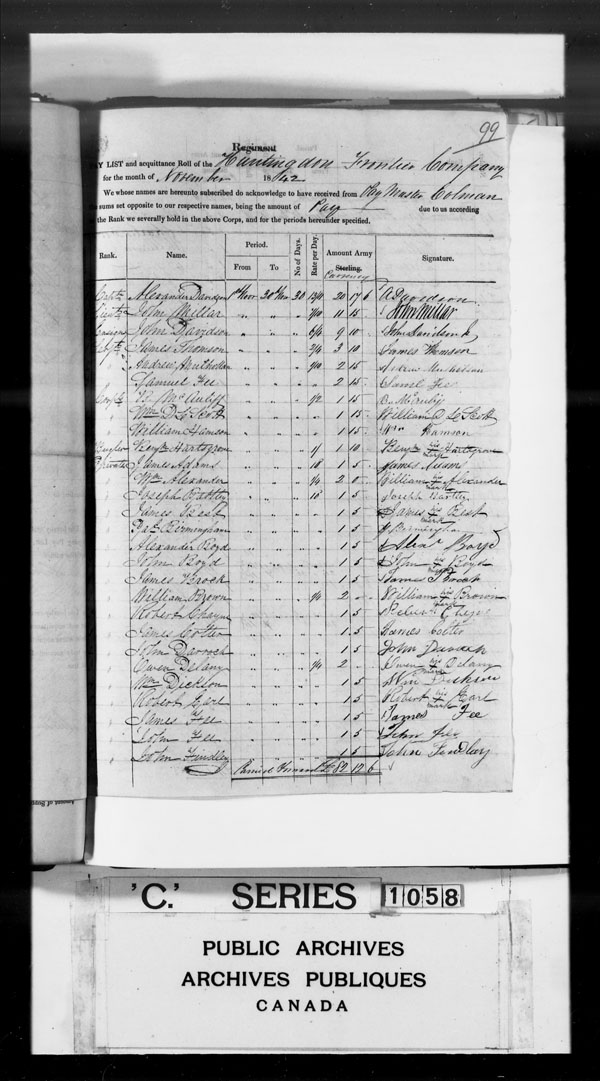 99
Regiment
PAY LIST and acquittance Roll of the Huntingdon Frontier Company
for the month of November 1842
We whose names are hereunto subscribed do acknowledge to have received from Pay Master Colman
the sums set opposite to our respective names, being the amount of Pay due to us according
to the Rank we severally hold in the above Corps, and for the periods hereunder specified.
Rank. Name. Period. No of Days. Rate per Day. Amount Army Sterling. Signature.
From To Currency
Captn Alexander Davidson 1st Novr 30th Nov 30 20 17 6 A Davidson
Lieutt John Millar " " " 11 15 John Millar
Ensign John Davidson " " " 9 10 John Davidson
James Thomson " " " 3 10 James Thomson
Andrew " " " 2 15 Andrew
Samuel Fee " " " 2 15 Saml Fee
McAuliff " " " 1/2 1 15
Wm D. Le Scott " " " 1 15 William D Le Scott
William Hamson " " " 1 15 Wm Hamson
Bugler Benjn Hartogron " " " 1/ 1 10 Benjn his Hartogron
Privates James Adams " " " 10 1 5 James Adams
" Wm Alexander " " " 1/4 2 0 William his mark Alexander
" Joseph Bartley " " " 10 1 5 Joseph Bartley
" James Best " " " 1 5 James his mark Best
" Pat Birmingham " " " 1 5 P Birmingham
" Alexander Boyd " " " 1 5 Alexr Boyd
" John Boyd " " " 1 5 John his mark Boyd
" James Brock " " " 1 5 James Brock
" William Brown " " " 1/4 2 " William his mark Brown
" Robert " " " 1 5 Robert
" James Cotter " " " 1 5 James Cotter
" John Darroch " " " 1 5 John Darroch
" Owen Delany " " " 1/4 2 " Owen his mark Delany
" Wm Dickson " " " 1 5 Wm Dickson
" Robert Earl " " " 1 5 Robert his mark Earl
" James Fee " " " 1 5 James Fee
" John Fee " " " 1 5 John Fee
" John Findley " " " 1 5 John Findley
Carried Forward £ 82 12 6
'C.' SERIES 1058
PUBLIC ARCHIVES
ARCHIVES PUBLIQUES
CANADA